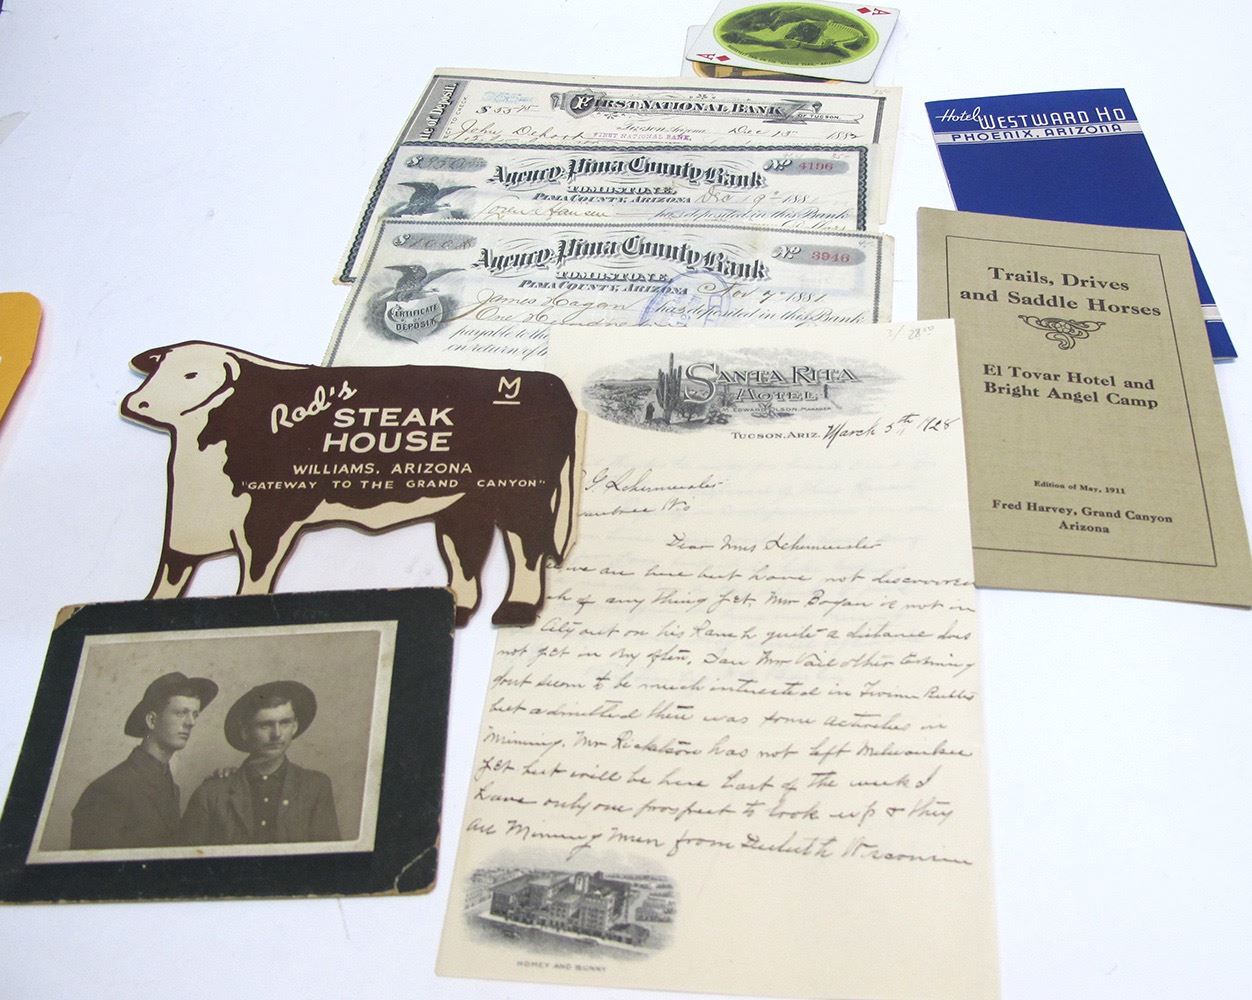 A
A
te of Deposit.
$ 55 75
FIRST NATIONAL BANK
OF TUCSON.
Tucson, Arizona Dec 15 1882
John Dehoot FIRST NATIONAL BANK.
Agency Pima County Bank
No 4196
TOMBSTONE,
PIMA COUNTY, ARIZONA Dec 9th 1881
has deposited in this Bank
$
Agency Pima County Bank
No 3946
TOMBSTONE,
PIMA COUNTY, ARIZONA Nov 7th 1881
CERTIFICATE OF DEPOSIT
James Hagan has deposited in this Bank
One Hundred
payable to the
on return of
Hotel WESTWARD HO
PHOENIX, ARIZONA
Trails, Drives
and Saddle Horses
El Tovar Hotel and
Bright Angel Camp
Edition of May, 1911
Fred Harvey, Grand Canyon
Arizona
Rod's
STEAK
HOUSE
WILLIAMS, ARIZONA
"GATEWAY TO THE GRAND CANYON"
SANTA RITA
HOTEL
EDWARD OLSON, MANAGER
TUCSON, ARIZ. March 5th 1928
Dear Mrs Schermeister
we are here but have not discovered
of any thing yet. Mr Bogan is not in
City out on his Ranch quite a distance does
not get in very often, Saw Mr Vail other Evening
dont seem to be much interested in
but admitted there was some activities in
Minning. Mr has not left Milwaukee
yet but will be here last of the week I
have only one prospect to look up & they
are Minning Men from Duluth Wisconsin
HOMEY AND SUNNY